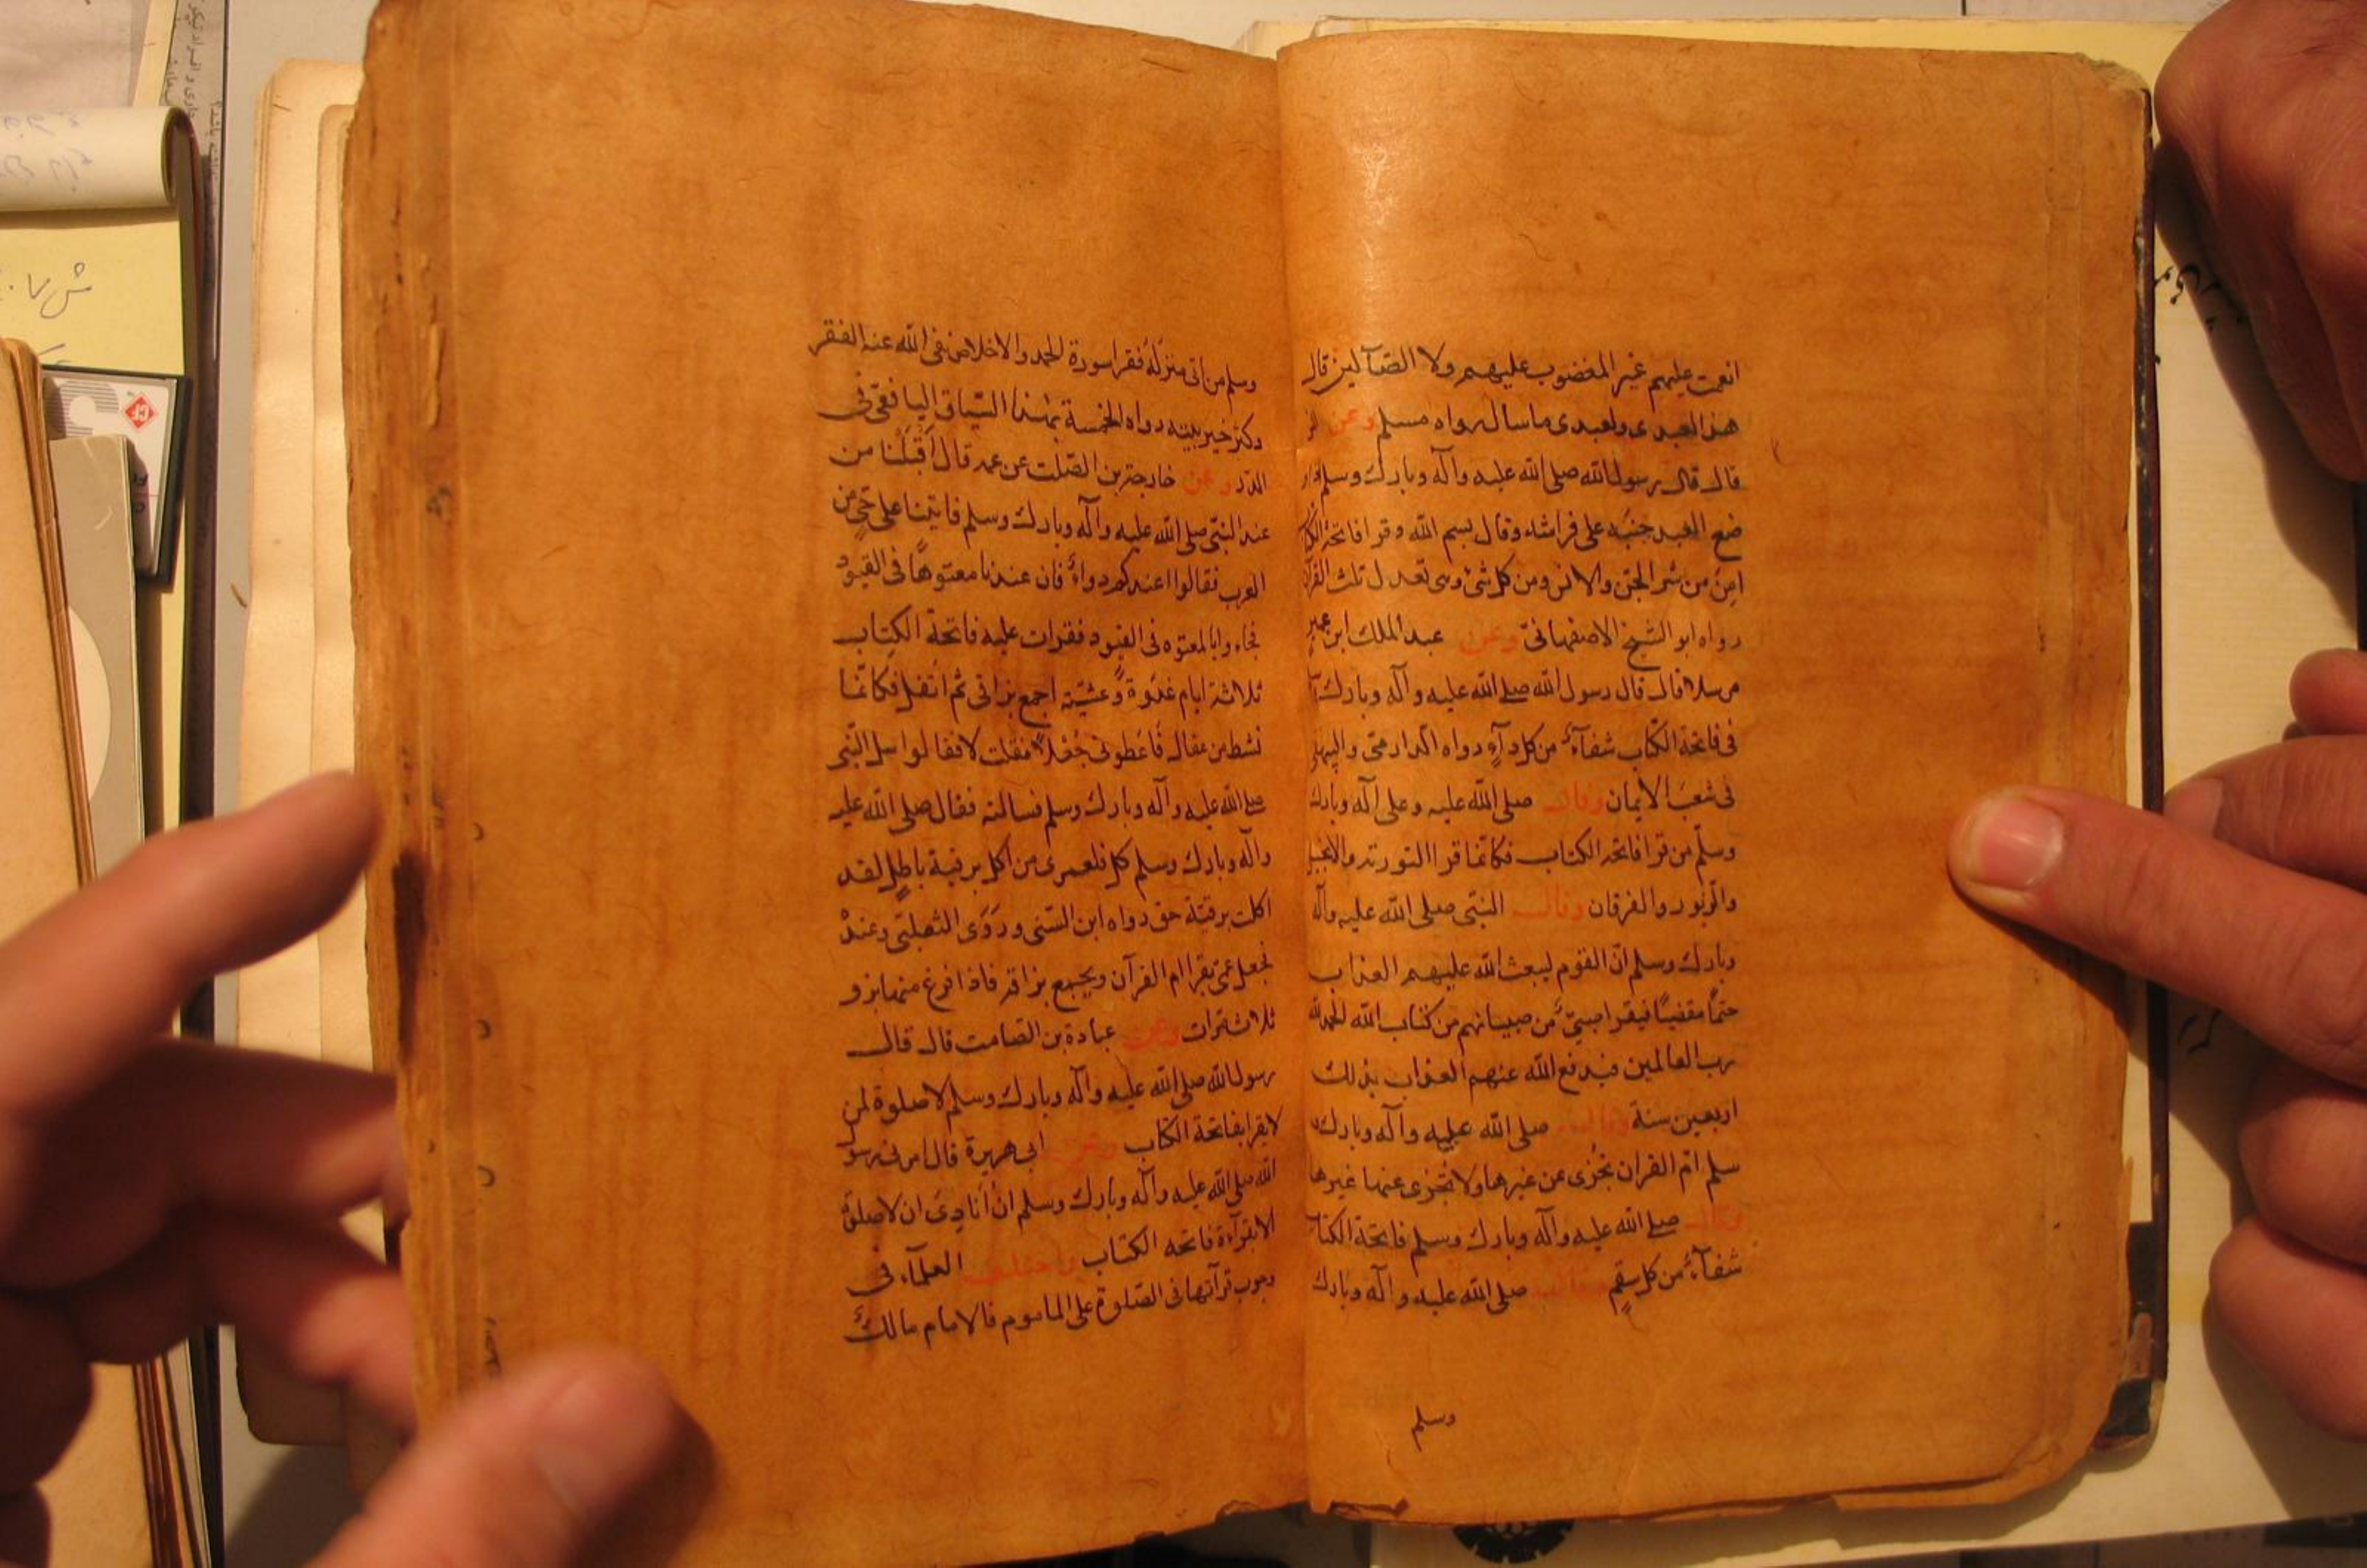 انعمت عليهم غير المغضوب عليهم ولا الضآلين قال
هذا لعبدى ولعبدى ماسال رواه مسلم وعن
قال قال رسول الله صلى الله عليه وآله وبارك وسلم اذا و
ضع العبد جنبه على فراشه وقال بسم الله وقرا فاتحة الكتا
امن من شر الجن والانس ومن كل شئ وهى تعدل ثلث القرآن
رواه ابو الشيخ الاصفهانى وعن عبد الملك ابن عمير
مرسلا قال قال رسول الله صلى الله عليه وآله وبارك
فى فاتحة الكتاب شفآء من كل دآء رواه الدارمى والبيهقى
فى شعب الايمان وقال صلى الله عليه وعلى آله وبارك
وسلم من قرا فاتحه الكتاب فكانما قرا التورته والانجيل
والزبور والفرقان وقال النبى صلى الله عليه وآله
وبارك وسلم ان القوم ليبعث الله عليهم العذاب
حتما مقضيا فيقرا صبى من صبيانهم من كتاب الله الحمد لله
رب العالمين فيدفع الله عنهم العذاب بذلك
اربعين سنة وقال صلى الله عليه وآله وبارك و
سلم ام القران تجزى عن غيرها ولا تجزى عنها غيرها
وقال صلى الله عليه وآله وبارك وسلم فاتحة الكتاب
شفآء من كل سقم وقال صلى الله عليه وآله وبارك
وسلم
وسلم من اتى منزله فقرا سورة الحمد والاخلاص نفى الله عنه الفقر
وكثر خير بيته رواه الخمسة بهذا السياق اليافعى فى
الدر وعن خارجة بن الصلت عن عمه قال اقبلنا من
عند النبى صلى الله عليه وآله وبارك وسلم فاتينا على حى من
العرب فقالوا اعندكم دواء فان عندنا معتوها فى القيود
فجاءوا بالمعتوه فى القيود فقرات عليه فاتحة الكتاب
ثلاثة ايام غدوة وعشية اجمع بزاقى ثم اتفل فكانما
نشط من عقال فاعطونى جعلا فقلت لا فقالوا سل النبى
صلى الله عليه وآله وبارك وسلم فسالته فقال صلى الله عليه
وآله وبارك وسلم كل فلعمرى من اكل برقية باطل لقد
اكلت برقية حق رواه ابن السنى وروى الثعلبى وعنده
فجعل عمى يقرا ام القرآن ويجمع بزاقه فاذا فرغ منها بزق
ثلاث مرات وعن عبادة بن الصامت قال قال
رسول الله صلى الله عليه وآله وبارك وسلم لا صلوة لمن
لا يقرا بفاتحة الكتاب وعن ابى هريرة قال امرنى رسول
الله صلى الله عليه وآله وبارك وسلم ان انادى ان لا صلوة
الا بقرآءة فاتحه الكتاب واختلف العلمآء فى
وجوب قرآتها فى الصلوة على الماموم فالامام مالك